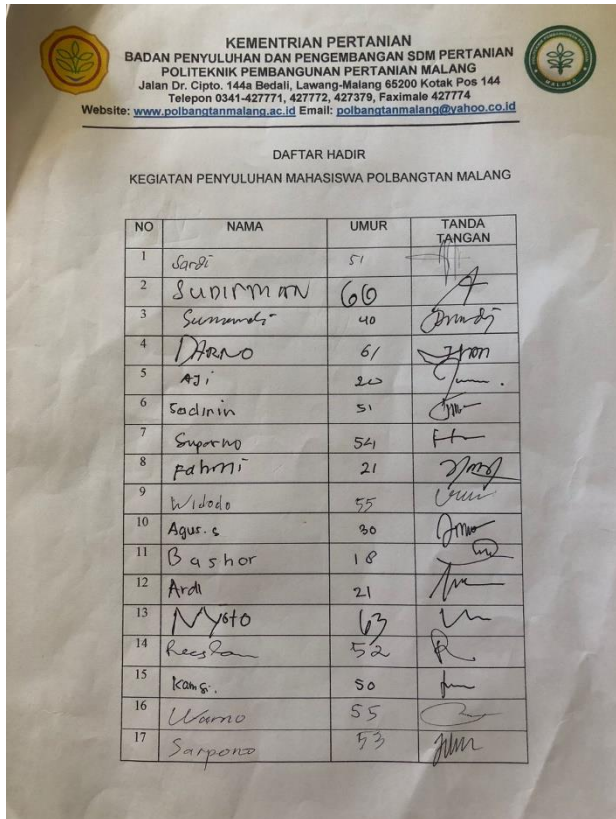 KEMENTRIAN PERTANIAN
BADAN PENYULUHAN DAN PENGEMBANGAN SDM PERTANIAN
POLITEKNIK PEMBANGUNAN PERTANIAN MALANG
Jalan Dr. Cipto. 144a Bedali, Lawang-Malang 65200 Kotak Pos 144
Telepon 0341-427771, 427772, 427379, Faximale 427774
Website: www.polbangtanmalang.ac.id Email: polbangtanmalang@yahoo.co.id
DAFTAR HADIR
KEGIATAN PENYULUHAN MAHASISWA POLBANGTAN MALANG
NO NAMA UMUR TANDA TANGAN
1 Sardi 51
2 SUDIRMAN 60
3 40
4 DARNO 61
5 AJi 20
6 Sodirin 51
7 Suparno 54
8 Fahmi 21
9 Widodo 55
10 Agus. s 30
11 Bashor 18
12 Ardi 21
13 Nyoto 63
14 52
15 50
16 Warno 55
17 Sarpono 53